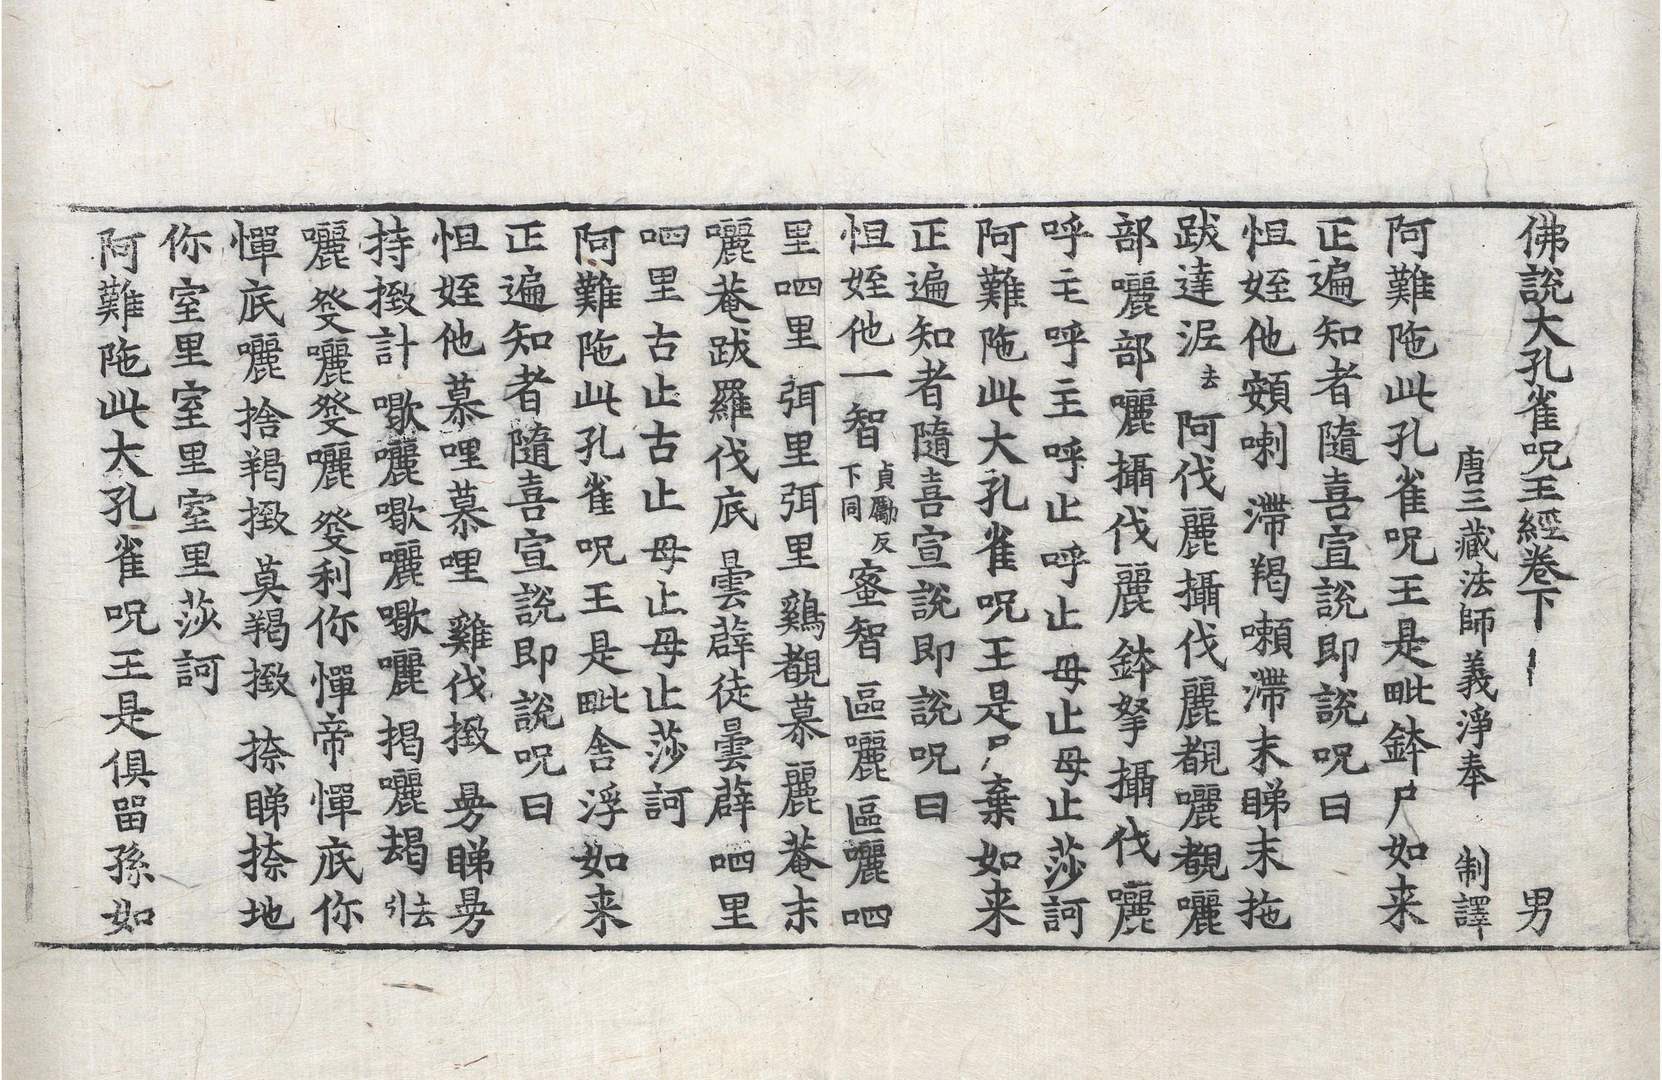 佛說大孔雀呪王經卷下　男
唐三藏法師義淨奉　制譯
阿難陁此孔雀呪王是毗鉢尸如来
正遍知者隨喜宣說即說呪曰
怛姪他頞喇　滯羯嚩滯末睇末拖
跋達泥去　阿伐麗攝伐麗覩囇覩囇
部囇部囇攝伐麗　鉢拏攝伐囇
呼主呼主呼止　呼止母止母止莎訶
阿難陁此大孔雀呪王是尸棄如来
正遍知者隨喜宣說即說呪曰
怛姪他一智貞勵反下同　蜜智　區囇區囇呬
里呬里　弭里弭里　鷄覩慕麗菴末
囇菴跋羅伐底　曇薜徒曇薜　呬里
呬里　古止古止　母止母止莎訶
阿難陁此孔雀呪王是毗舍浮如来
正遍知者隨喜宣說即說呪曰
怛姪他慕哩慕哩　雞伐㨖　曼睇曼
持㨖計　囇囇囇　揭囇朅引去
囇　癹囇癹囇　癹利你憚帝憚底你
憚底囇捨羯㨖　莫羯㨖　捺睇捺地
你室里室里室里莎訶
阿難陁此大孔雀呪王是俱留孫如